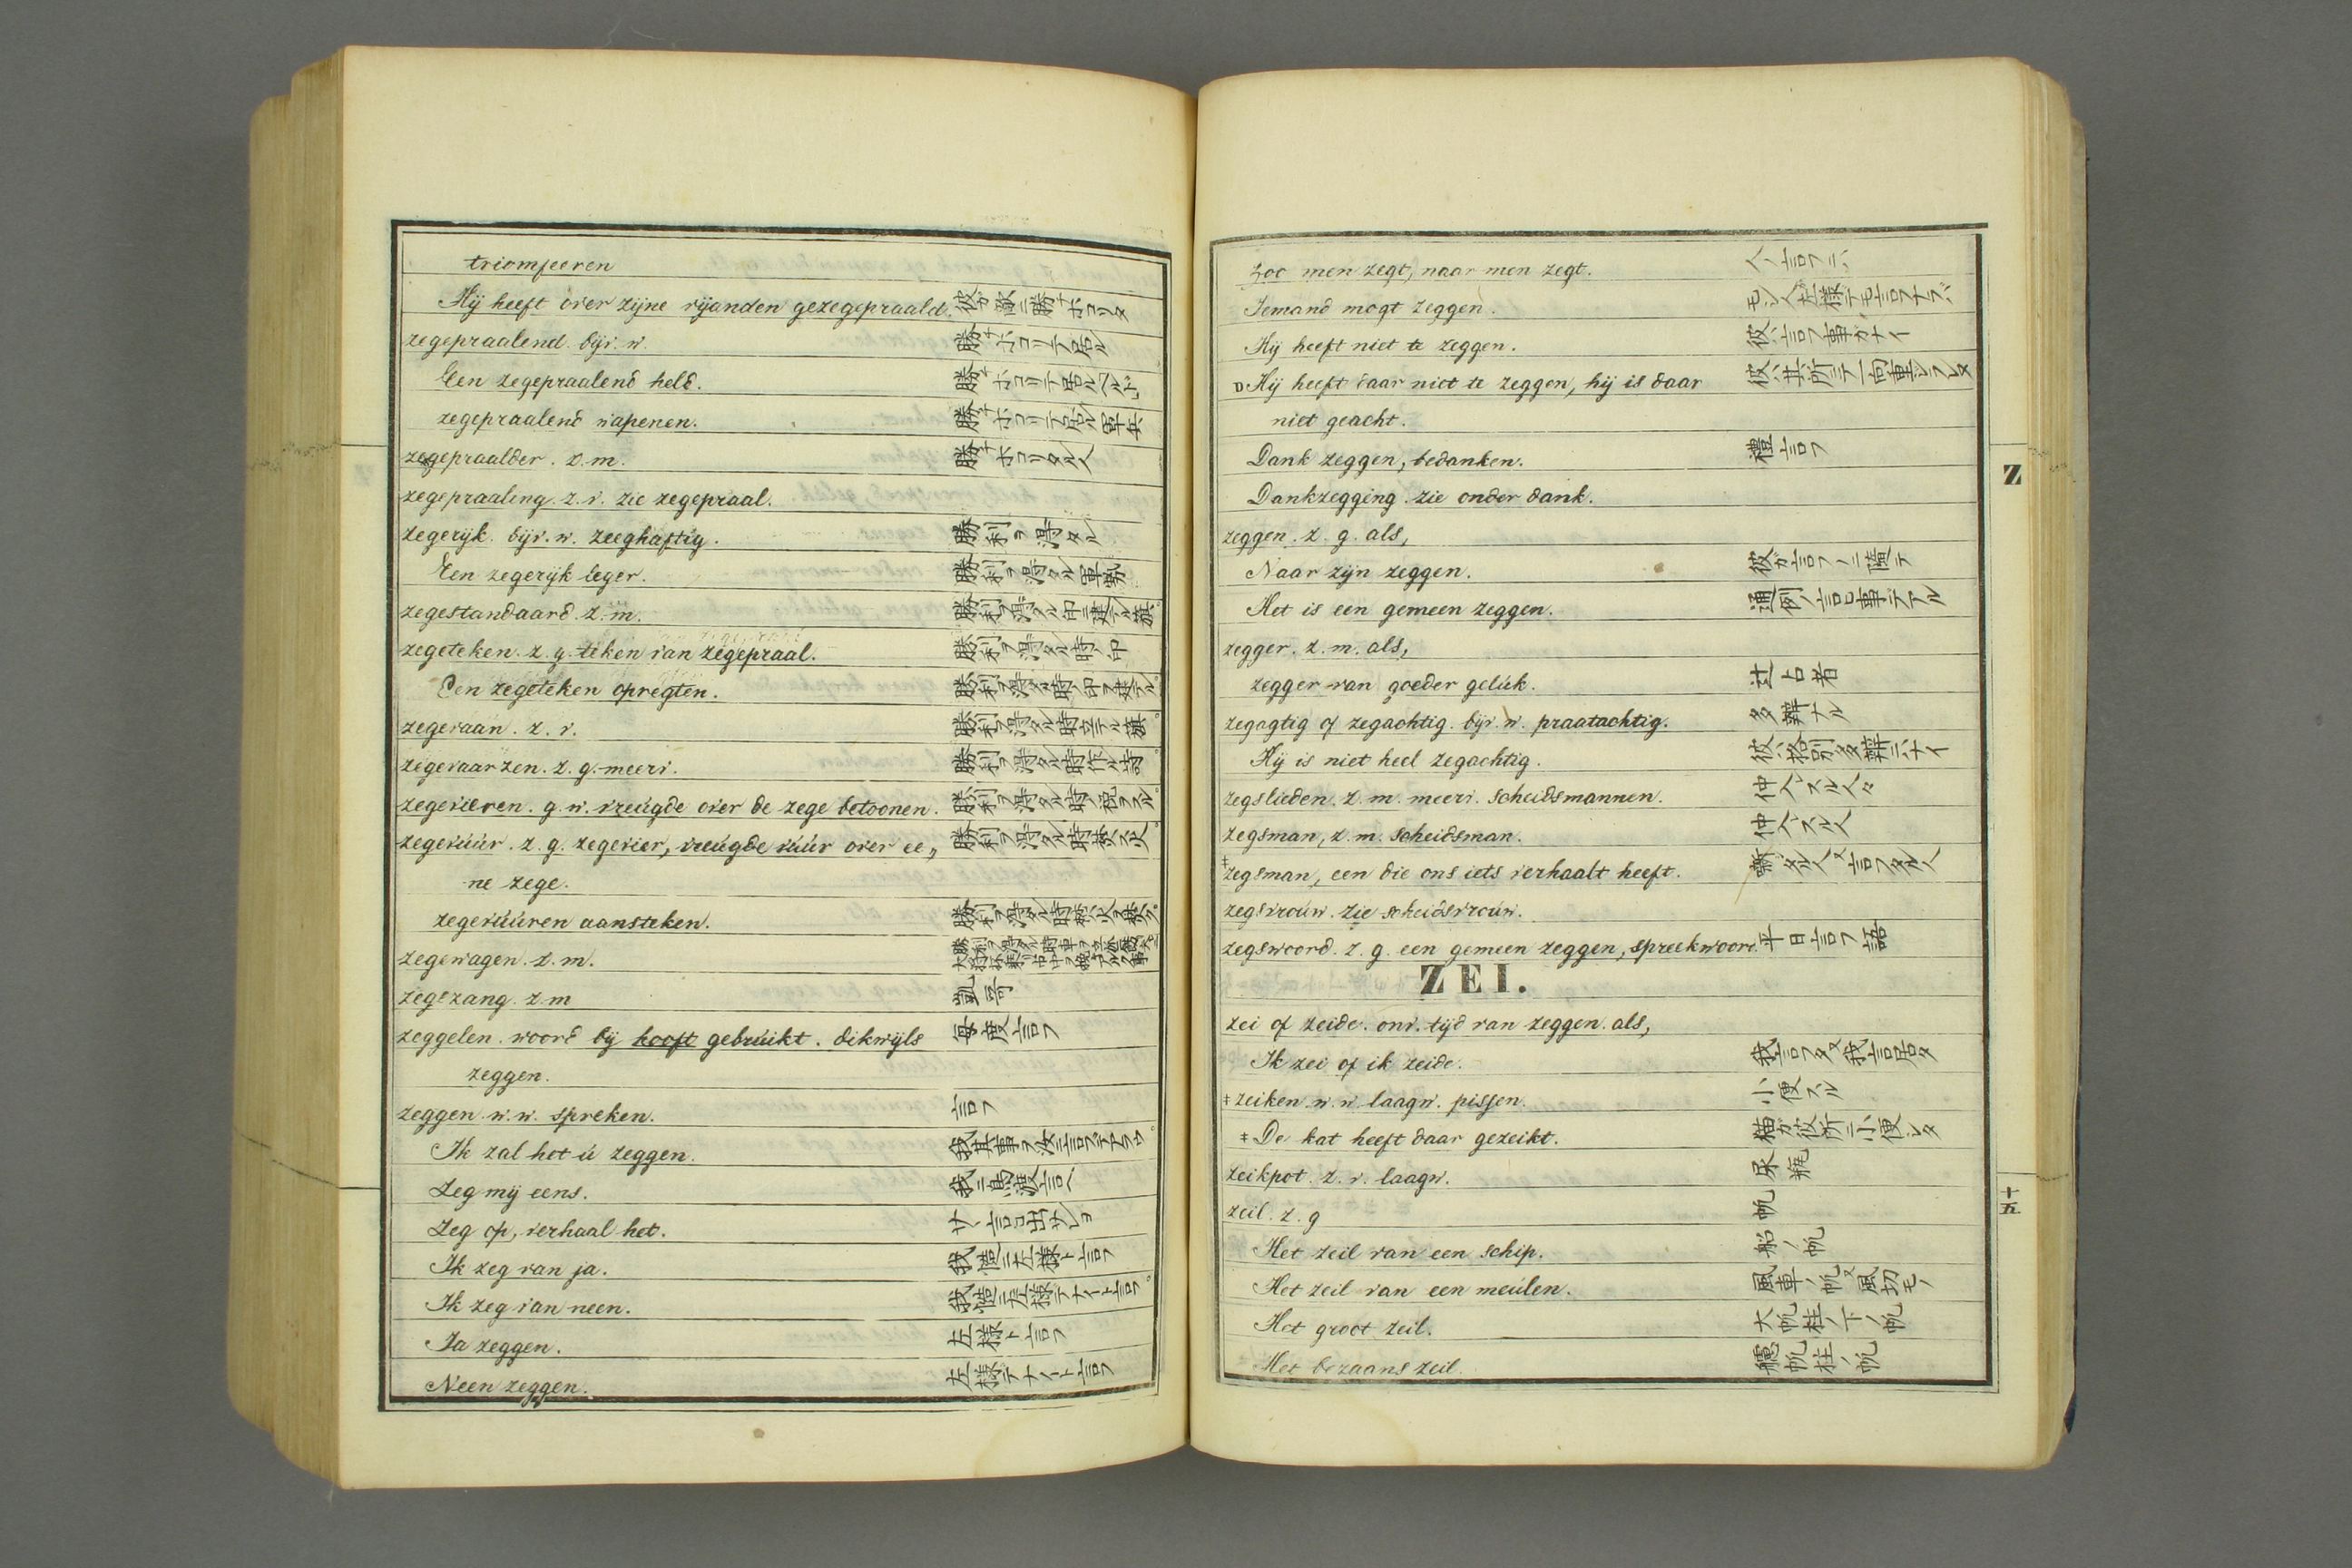 triomfeeren
Hij heeft over zijne vijanden gezegepraald. 彼ガ敵ニ勝ホコリタ
zegepraalend. bijv. w. 勝ホコリテ居ル
Een zegepraalend held. 勝ホコリテ居ル
zegepraalend wapenen. 勝ホコリテ居ル軍兵
zegepraalder. z. m. 勝ホコリタル人
zegepraaling. z. v. zie zegepraal.
zegerijk. bijv. w. zeeghaftig. 勝利ヲ得タル
Een zegerijk leger. 勝利ヲ得タル軍勢
zegestandaard. z. m. 勝利ヲ得タル印ニ建テル旗
zegeteken. z. g. teken van zegepraal. 勝利ヲ得タル時ノ印
Een zegeteken opregten. 勝利ヲ得タル時ノ印ヲ建テル
zegevaan. z. v. 勝利ヲ得タル時立テル旗
zegevaarzen. z. g. meerv. 勝利ヲ得タル時作ル詩
zegevieren. g. w. vreúgde over de zege betoonen. 勝利ヲ得タル時ノ祝ヲスル
zegevúúr. z. g. zegevier, vreúgde vúúr over ee„ 勝利ヲ得タル時焚ク火
ne zege.
zegevúúren aansteken. 勝利ヲ得タル時
zegewagen. z. m. 勝利ヲ得タル時
zegezang. z. m 凱哥
zeggelen. woord bij hooft gebrúikt. dikwijls 毎度言フ
zeggen.
zeggen. w. w. spreken. 言フ
Ik zal het ú zeggen. 我其事ヲ汝ニ言フデアラウ
Zeg mij eens. 我ニ
Zeg op, verhaal het. サ、言出サレヨ
Ik zeg van ja. 我慥ニ左様ト言フ
Ik zeg van neen. 我慥ニ左様テナイト言フ
Ja zeggen. 左様ト言フ
Neen zeggen. 左様テナイト言フ
Zoo men zegt, naar men zegt. 人ノ言フニハ
Iemand mogt zeggen. モシ人左様デモ言フナラバ
Hij heeft niet te zeggen. 彼ハ言フ事ガナイ
Hij heeft daar niet te zeggen, hij is daar 彼ハ其所ニテ一向重ンラレヌ
niet geacht.
Dank zeggen, bedanken. 禮言フ
Dankzegging. zie onder dank.
zeggen. z. g. als,
Naar zijn zeggen. 彼ガ言フノニ隨テ
Het is een gemeen zeggen. 通例ノ言ヒ事デアル
zegger. z. m. als,
zegger van goeder gelúk. 辻占者
zegagtig of zegachtig. bijv. w. praatachtig. 多辨ナル
Hij is niet heel zegachtig. 彼ハ格別多辨ニハナイ
zegslieden. z. m. meerv. scheidsmannen. 仲人スル人々
zegsman, z. m. scheidsman. 仲人スル人
‡zegsman, een die ons iets verhaalt heeft.
zegsvroúw. zie scheidsvroúw.
zegswoord. z. g. een gemeen zeggen, spreekwoord. 平日言フ語
ZEI.
zei of zeide. onv. tijd van zeggen. als,
Ik zei of ik zeide. 我言フタ又我言居タ
‡zeiken. w. w. laagw. pissen. 小便スル
‡De kat heeft daar gezeikt. 猫ガ彼所ニ小便シタ
zeikpot. z. v. laagw. 尿瓶
zeil. z. g 帆
Het zeil van een schip. 船ノ帆
Het zeil van een meúlen. 風車ノ帆又風切モノ
Het groot zeil. 大帆柱ノ下ノ帆
Het bezaans zeil. 艫帆柱ノ帆
Z
十五